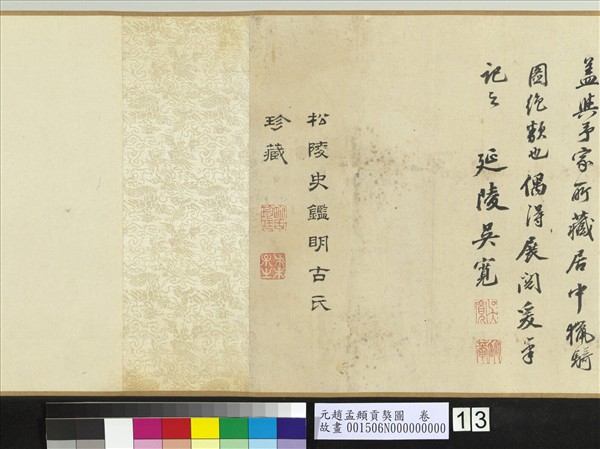 蓋與予家所藏居中獵騎
圖絶類也偶得展閱爰筆
記之 延陵吳寬
松陵史鑑明古氏
珍藏
元趙孟頫貢獒圖 卷
故畫 001506N000000000
13